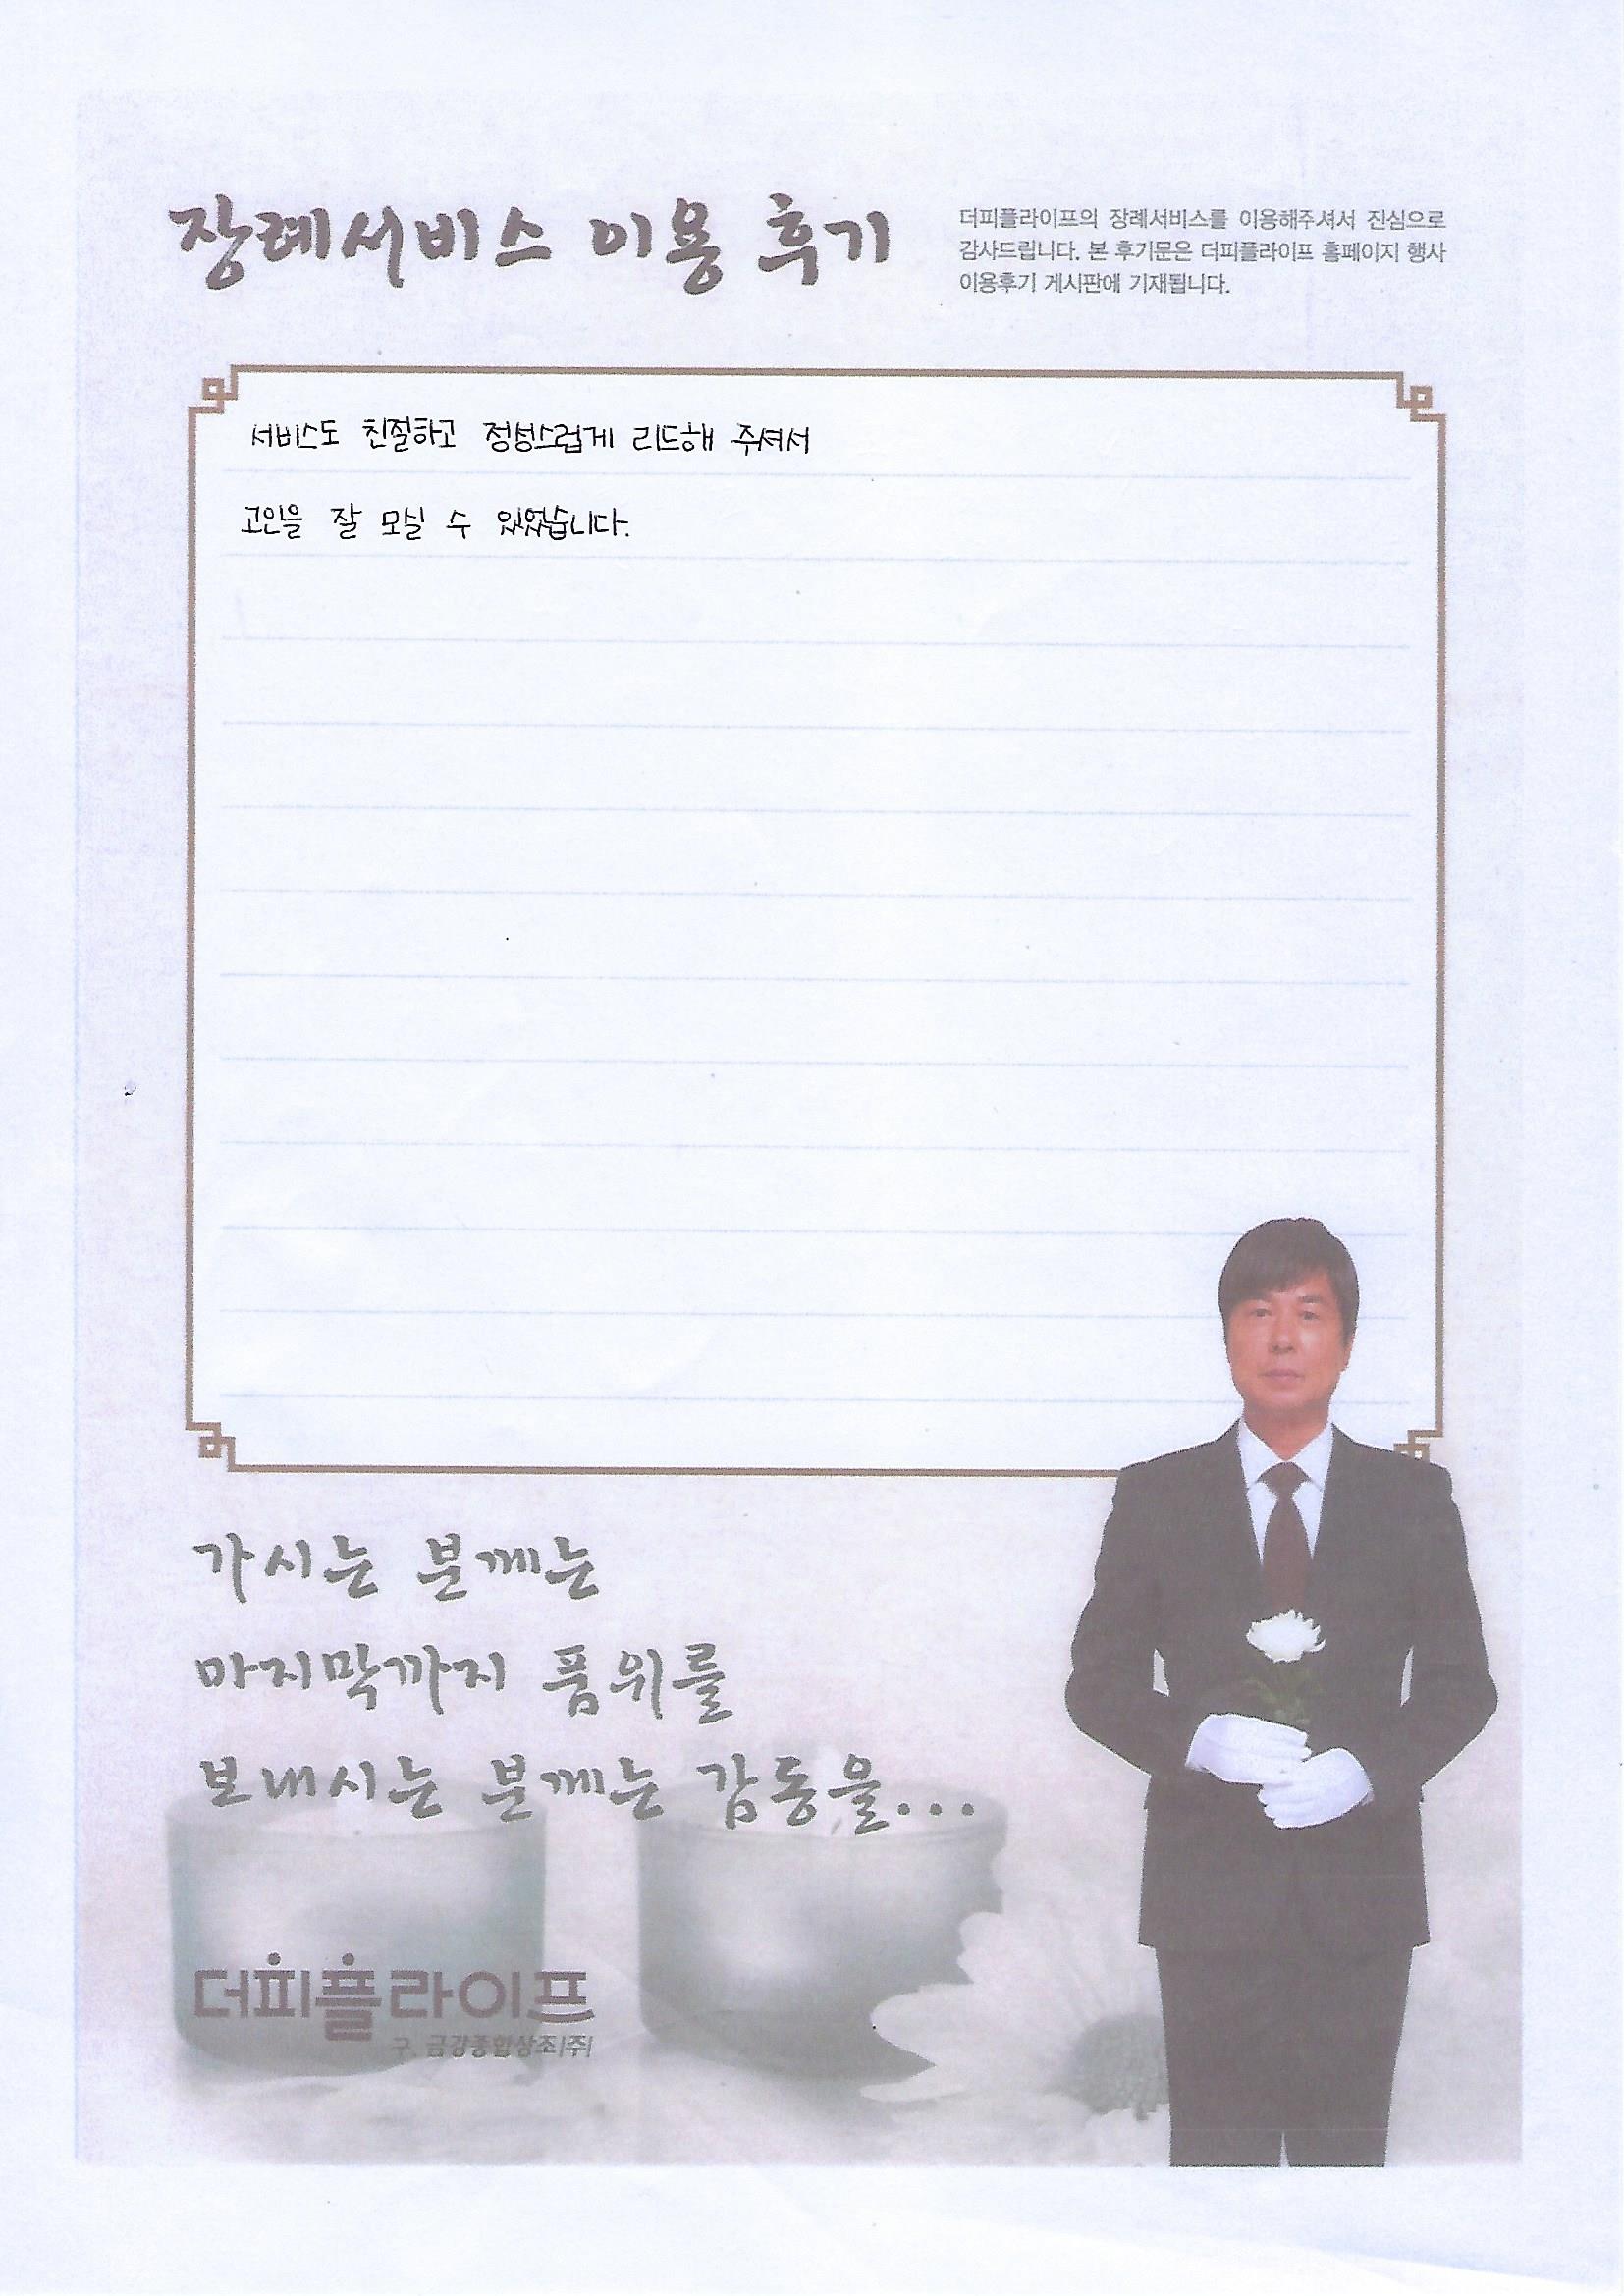 장례서비스 이용 후기
더피플라이프의 장례서비스를 이용해주셔서 진심으로
감사드립니다. 본 후기문은 더피플라이프 홈페이지 행사
이용후기 게시판에 기재됩니다.
서비스도 친절하고 정성스럽게 리드해 주셔서
고인을 잘 모실 수 있었습니다.
가시는 분께는
마지막까지 품위를
보내시는 분께는 감동을...
더피플라이프
구. 금강종합상조(주)